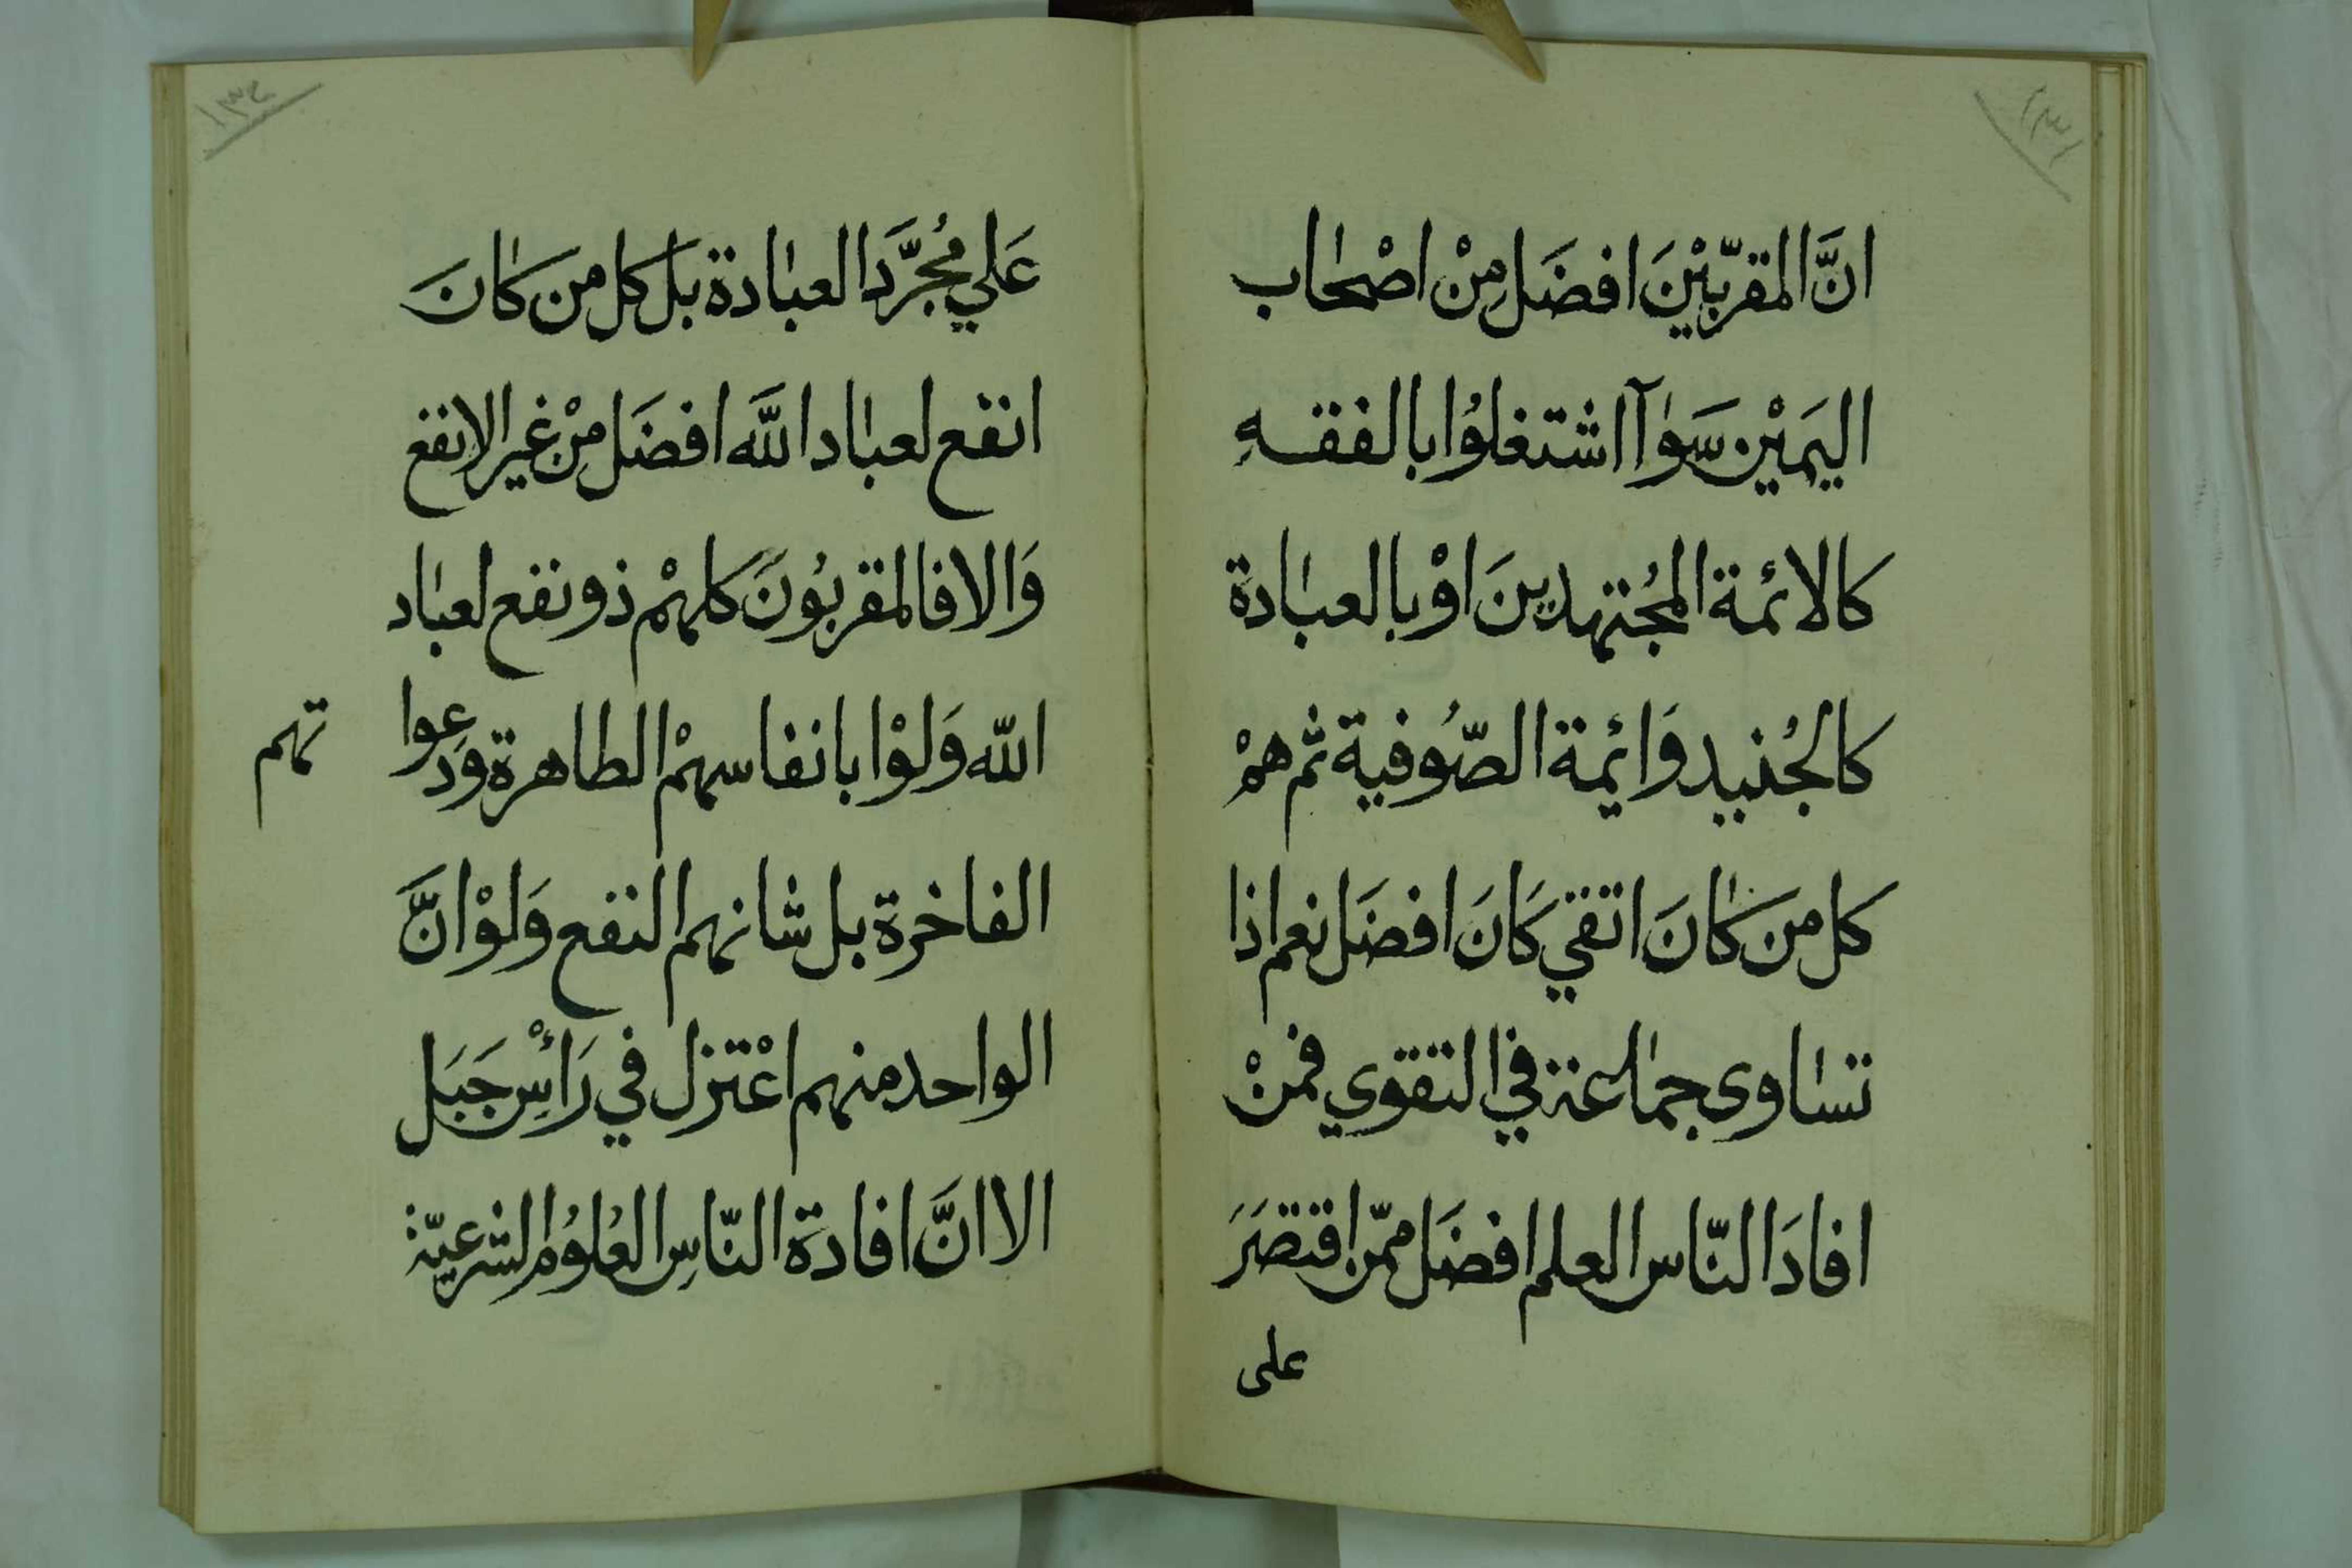 انَّ المقرّبّيْنَ افضَل مِنْ اصْحٰاب
اليَمْيْن سَوٰآ اشتغلوُا بالفقهِ
كالائمة المجُتهدينَ اوْ بالعبٰادة
كالجُنيد وَائيمة الصّوُفية ثم همْ
كل من كٰانَ اتقي كَانَ افضَل نعم اذا
تسٰاوى جمٰاعة في التقوي فمنْ
افادَ النّاس العلم افضَل ممّن اقتصَرَ
على
عَلي مُجرَّد العبٰادة بَل كل من كٰانَ
انفع لعبٰاد اللَّه افضَل مِنْ غير الانفع
وَالا فالمقربوُنَ كلهمْ ذو نفع لعبٰاد
اللّه وَلوْا بانفاسهمْ الطاهرة وَدعوا
تهم
الفاخرة بل شانهم النفع وَلوْ انَّ
الواحد منهم اعْتزل في رَأْسِ جَبَل
الا انَّ افادة النّاسِ العُلوُم الشرعيّة